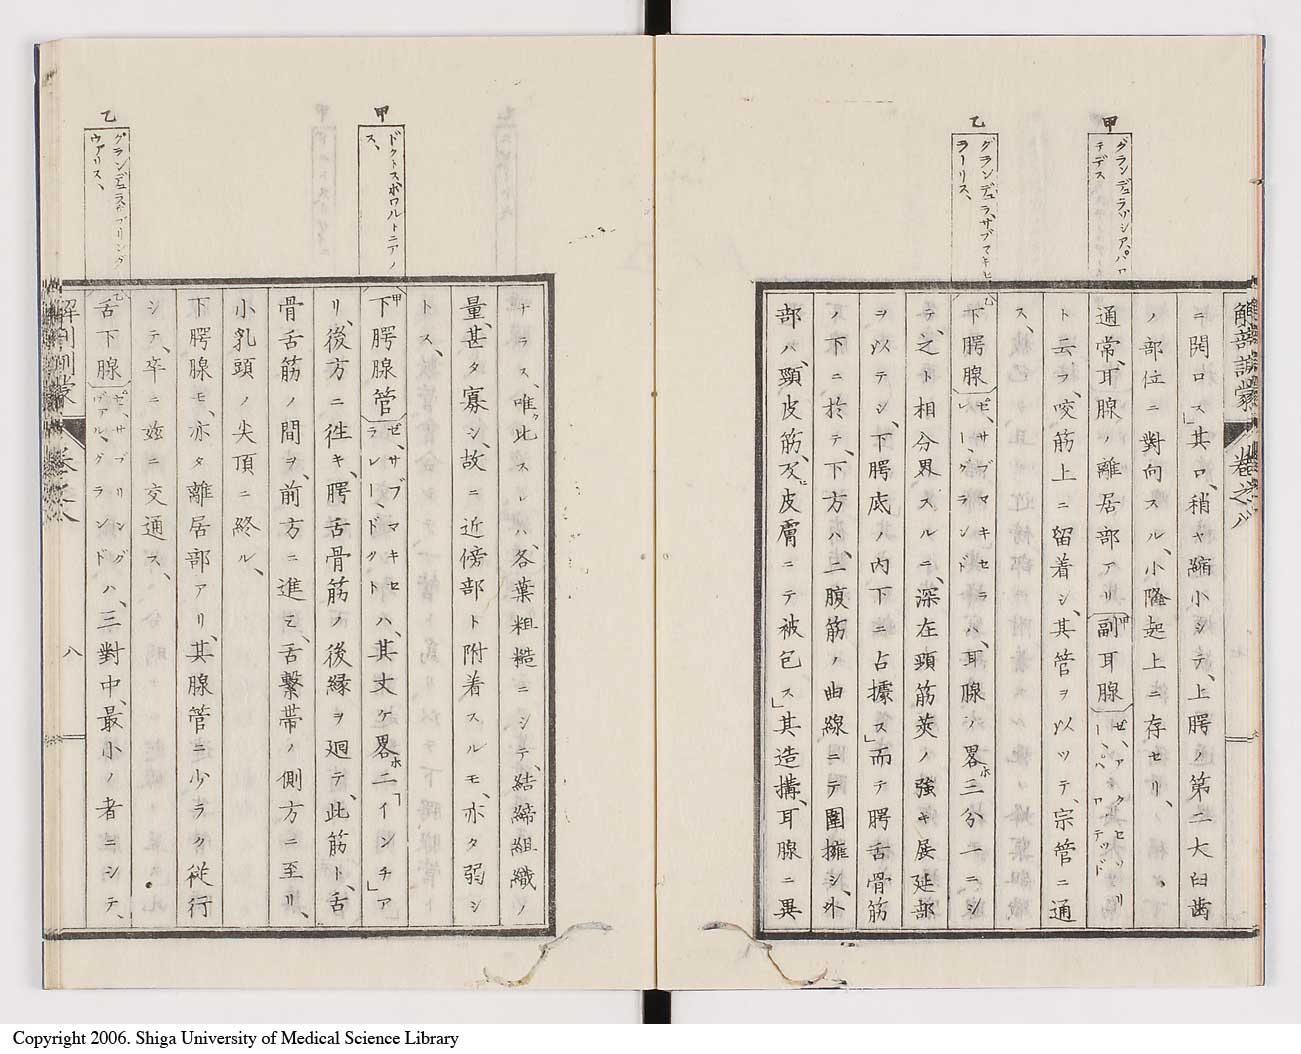 甲
グランデュラ、ソシア、パロ
チデス
乙
グランデュラ、サブマキセ
ラーリス、
解剖訓蒙
卷之八
ニ開口ス」其口、稍ヤ縮小シテ、上腭ノ第二大臼齒
ノ部位ニ對向スル、小隆起上ニ存セリ、
通常、耳腺ノ離居部アリ副耳腺ゼ、アクセッソリー、パロテッド
ト云フ、咬筋上ニ留着シ、其管ヲ以ツテ、宗管ニ通
ス、
下腭腺ゼ、サブマキセラレー、グランドハ、耳腺ノ畧ホ三分一ニシ
テ、之ト相分界スルニ、深在頸筋莢ノ強キ展延部
ヲ以テシ、下腭底ノ内下ニ占據ス」而テ腭舌骨筋
ノ下ニ於テ、下方ハ、二腹筋ノ曲線ニテ圍擁シ、外
部ハ、頸皮筋、及ヒ皮膚ニテ被包ス」其造搆、耳腺ニ異
甲
ドクトスボワルトニアノ
ス、
乙
グランデュラ、スブリング
ウァリス、
ナラス、唯タ此スレハ、各葉粗糙ニシテ、結締組織ノ
量、甚タ寡シ、故ニ近傍部ト附着スルモ、亦タ弱シ
トス、
甲
下腭腺管ゼ、サブマキセラレー、ドクトハ、其丈ケ畧ホ二「インチ」ア
リ、後方ニ徃キ、腭舌骨筋ノ後縁ヲ廻テ、此筋ト、舌
骨舌筋ノ間ヲ、前方ニ進ミ、舌繋帶ノ側方ニ至リ、
小乳頭ノ尖頂ニ終ル、
下腭腺モ、亦タ離居部アリ、其腺管ニ少ラク從行
シテ、卒ニ玆ニ交通ス、
乙
舌下腺ゼ、サブリングヴァル、グランドハ、三對中、最小ノ者ニシテ、
解剖訓蒙
卷之八
八
Copyright 2006. Shiga University of Medical Science Library